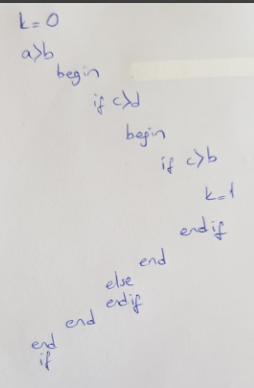 k=0
a>b
begin
if c>d
begin
if c>b
k=1
endif
end
else
endif
end
end
if